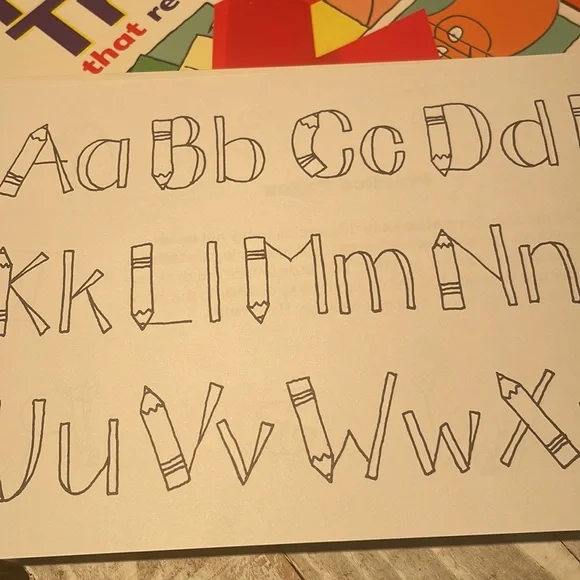 that re
Aa Bb Cc Dd
Kk Ll Mm Nn
Uu Vv Ww X